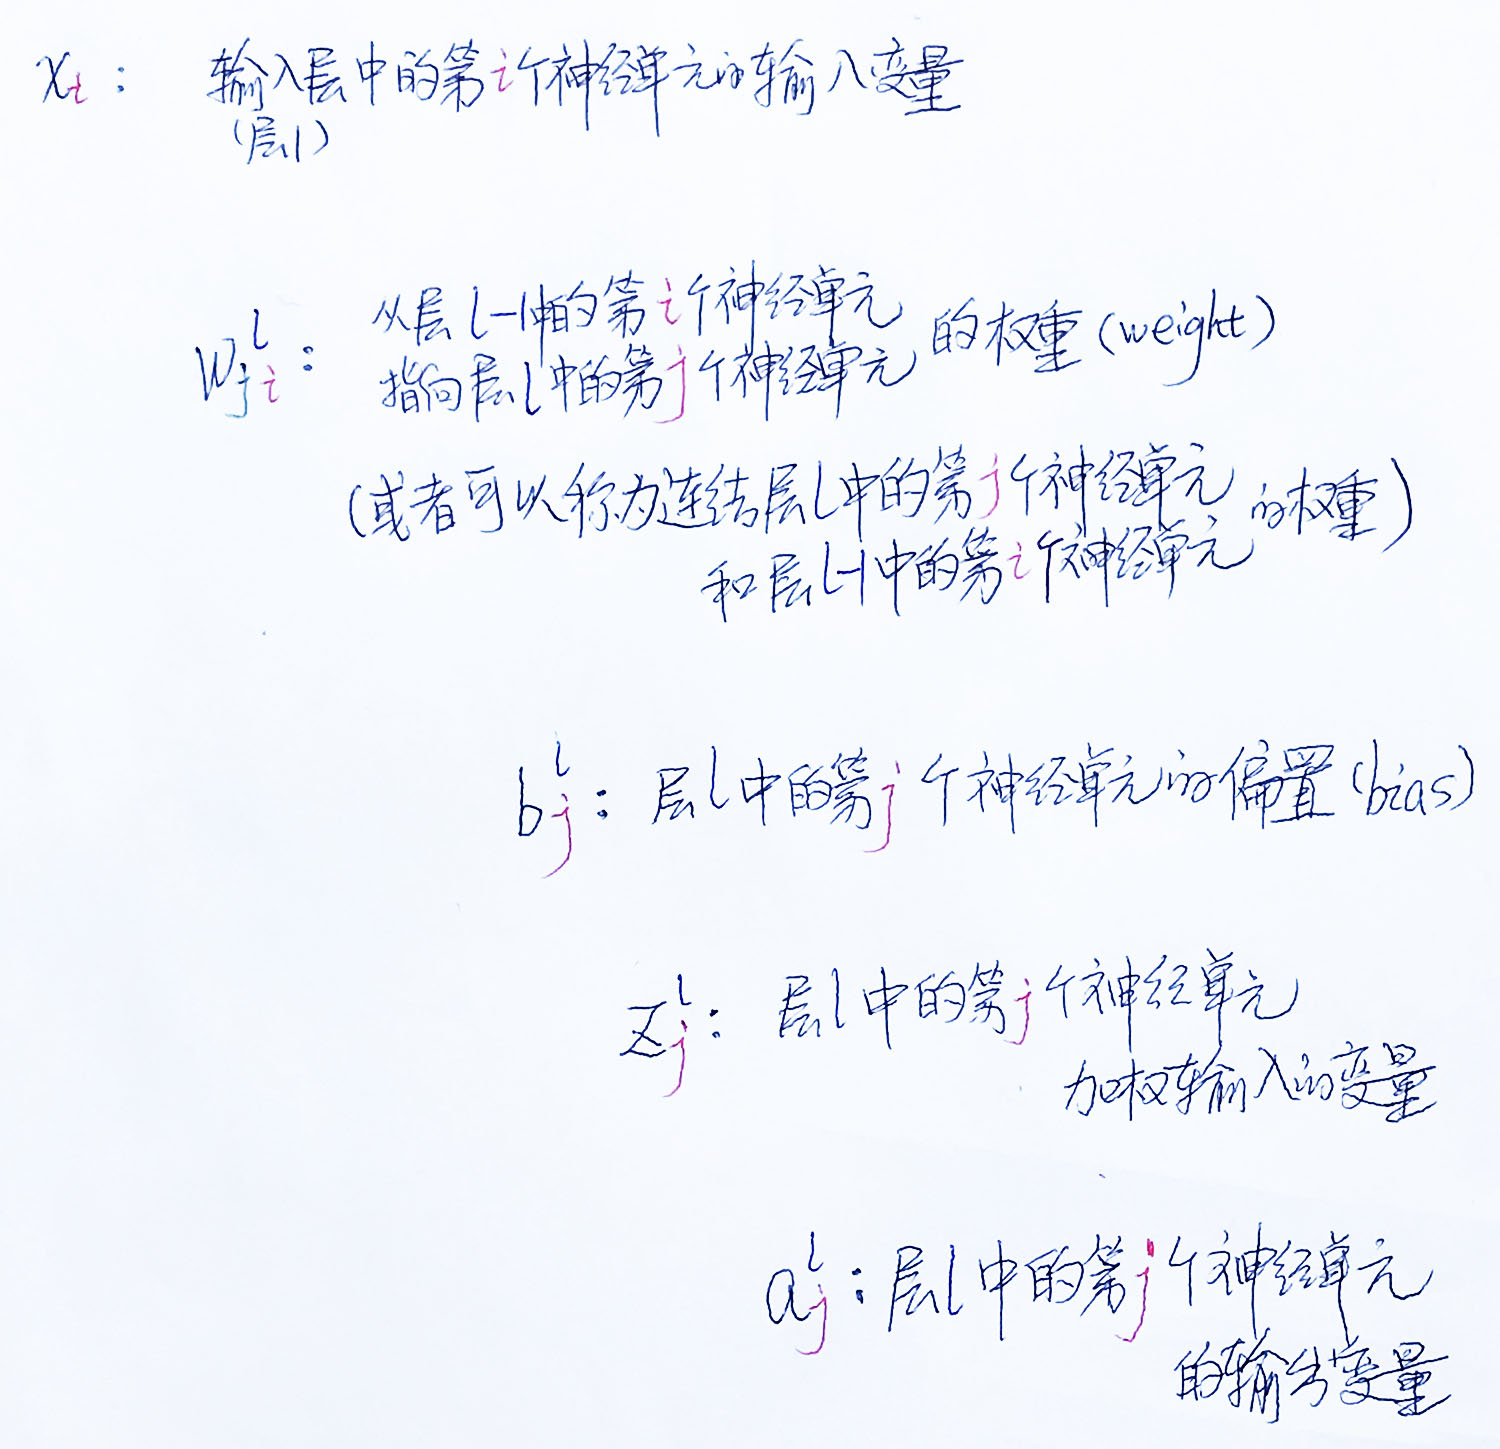 x_i： 输入层中的第i个神经单元的输入变量
（层1）
w_{ji}^l： 从层l-1中的第i个神经单元
指向层l中的第j个神经单元 的权重（weight）
（或者可以称为连结层l中的第j个神经单元
和层l-1中的第i个神经单元 的权重）
b_j^l： 层l中的第j个神经单元的偏置（bias）
z_j^l： 层l中的第j个神经单元
加权输入的变量
a_j^l：层l中的第j个神经单元
的输出变量